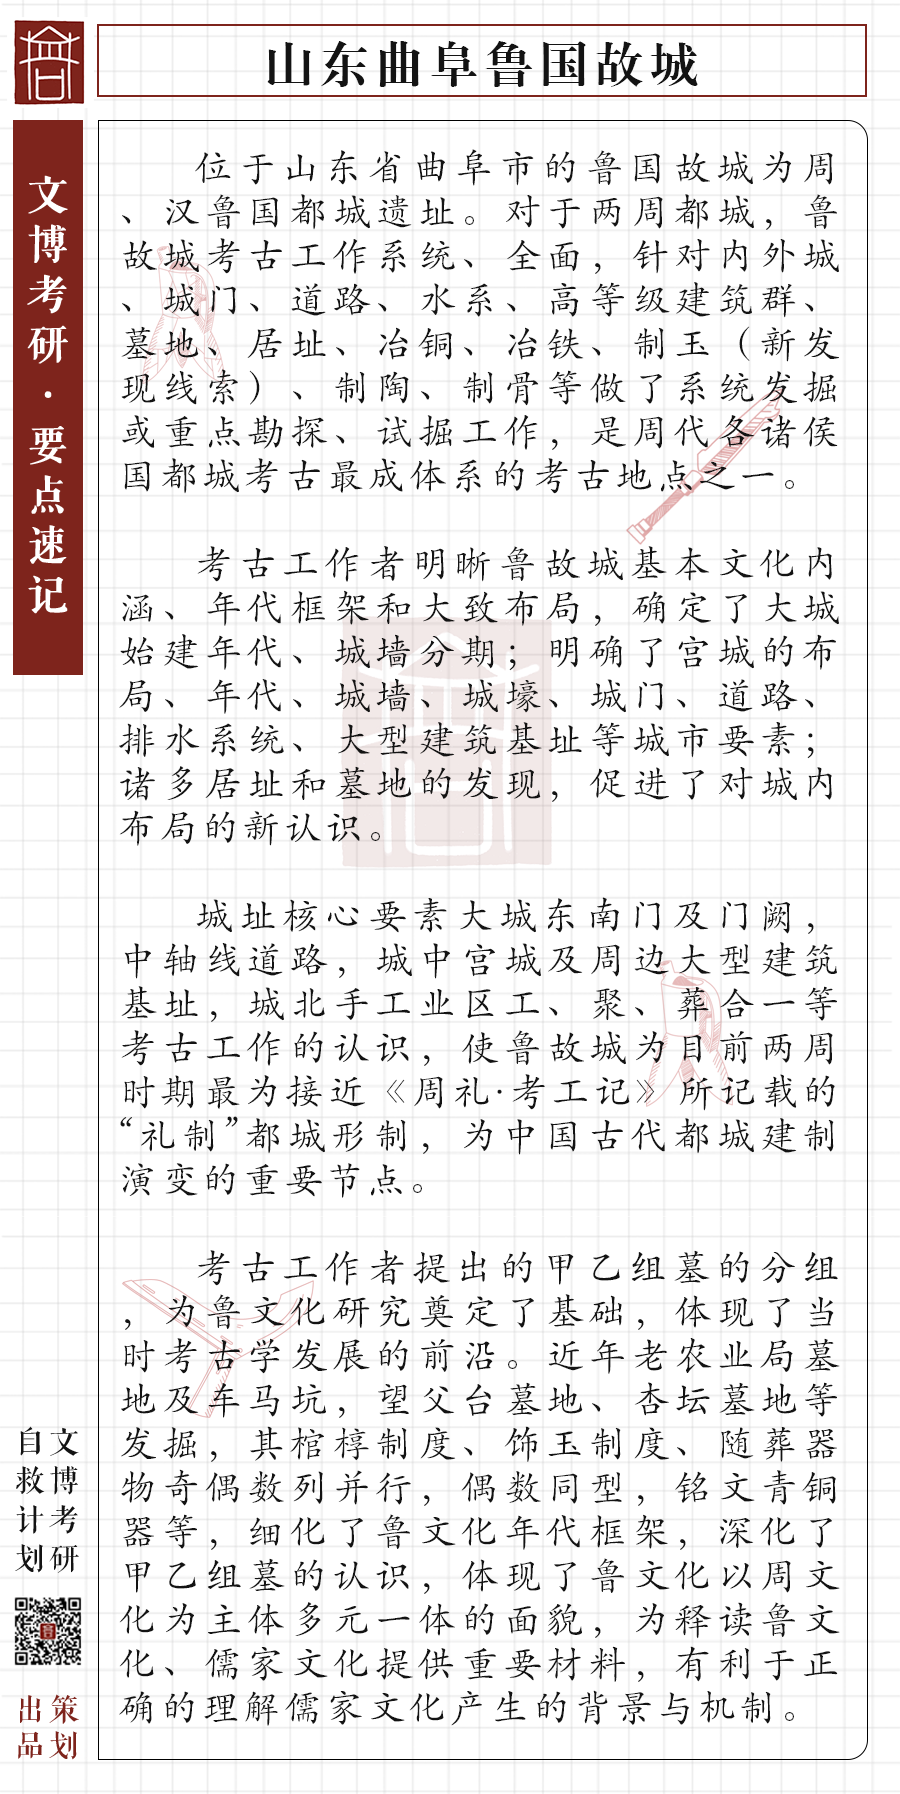 山东曲阜鲁国故城
文博考研·要点速记
位于山东省曲阜市的鲁国故城为周
、汉鲁国都城遗址。对于两周都城，鲁
故城考古工作系统、全面，针对内外城
、城门、道路、水系、高等级建筑群、
墓地、居址、冶铜、冶铁、制玉（新发
现线索）、制陶、制骨等做了系统发掘
或重点勘探、试掘工作，是周代各诸侯
国都城考古最成体系的考古地点之一。
考古工作者明晰鲁故城基本文化内
涵、年代框架和大致布局，确定了大城
始建年代、城墙分期；明确了宫城的布
局、年代、城墙、城壕、城门、道路、
排水系统、大型建筑基址等城市要素；
诸多居址和墓地的发现，促进了对城内
布局的新认识。
城址核心要素大城东南门及门阙，
中轴线道路，城中宫城及周边大型建筑
基址，城北手工业区工、聚、葬合一等
考古工作的认识，使鲁故城为目前两周
时期最为接近《周礼·考工记》所记载的
“礼制”都城形制，为中国古代都城建制
演变的重要节点。
考古工作者提出的甲乙组墓的分组
，为鲁文化研究奠定了基础，体现了当
时考古学发展的前沿。近年老农业局墓
地及车马坑，望父台墓地、杏坛墓地等
发掘，其棺椁制度、饰玉制度、随葬器
物奇偶数列并行，偶数同型，铭文青铜
器等，细化了鲁文化年代框架，深化了
甲乙组墓的认识，体现了鲁文化以周文
化为主体多元一体的面貌，为释读鲁文
化、儒家文化提供重要材料，有利于正
确的理解儒家文化产生的背景与机制。
文博考研
自救计划
策划
出品